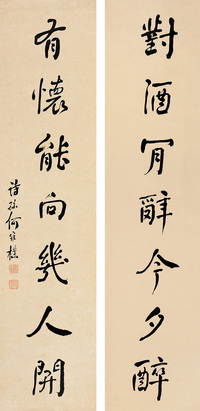 對酒肎辭今夕醉
有懷能向幾人開
詩孫何維樸